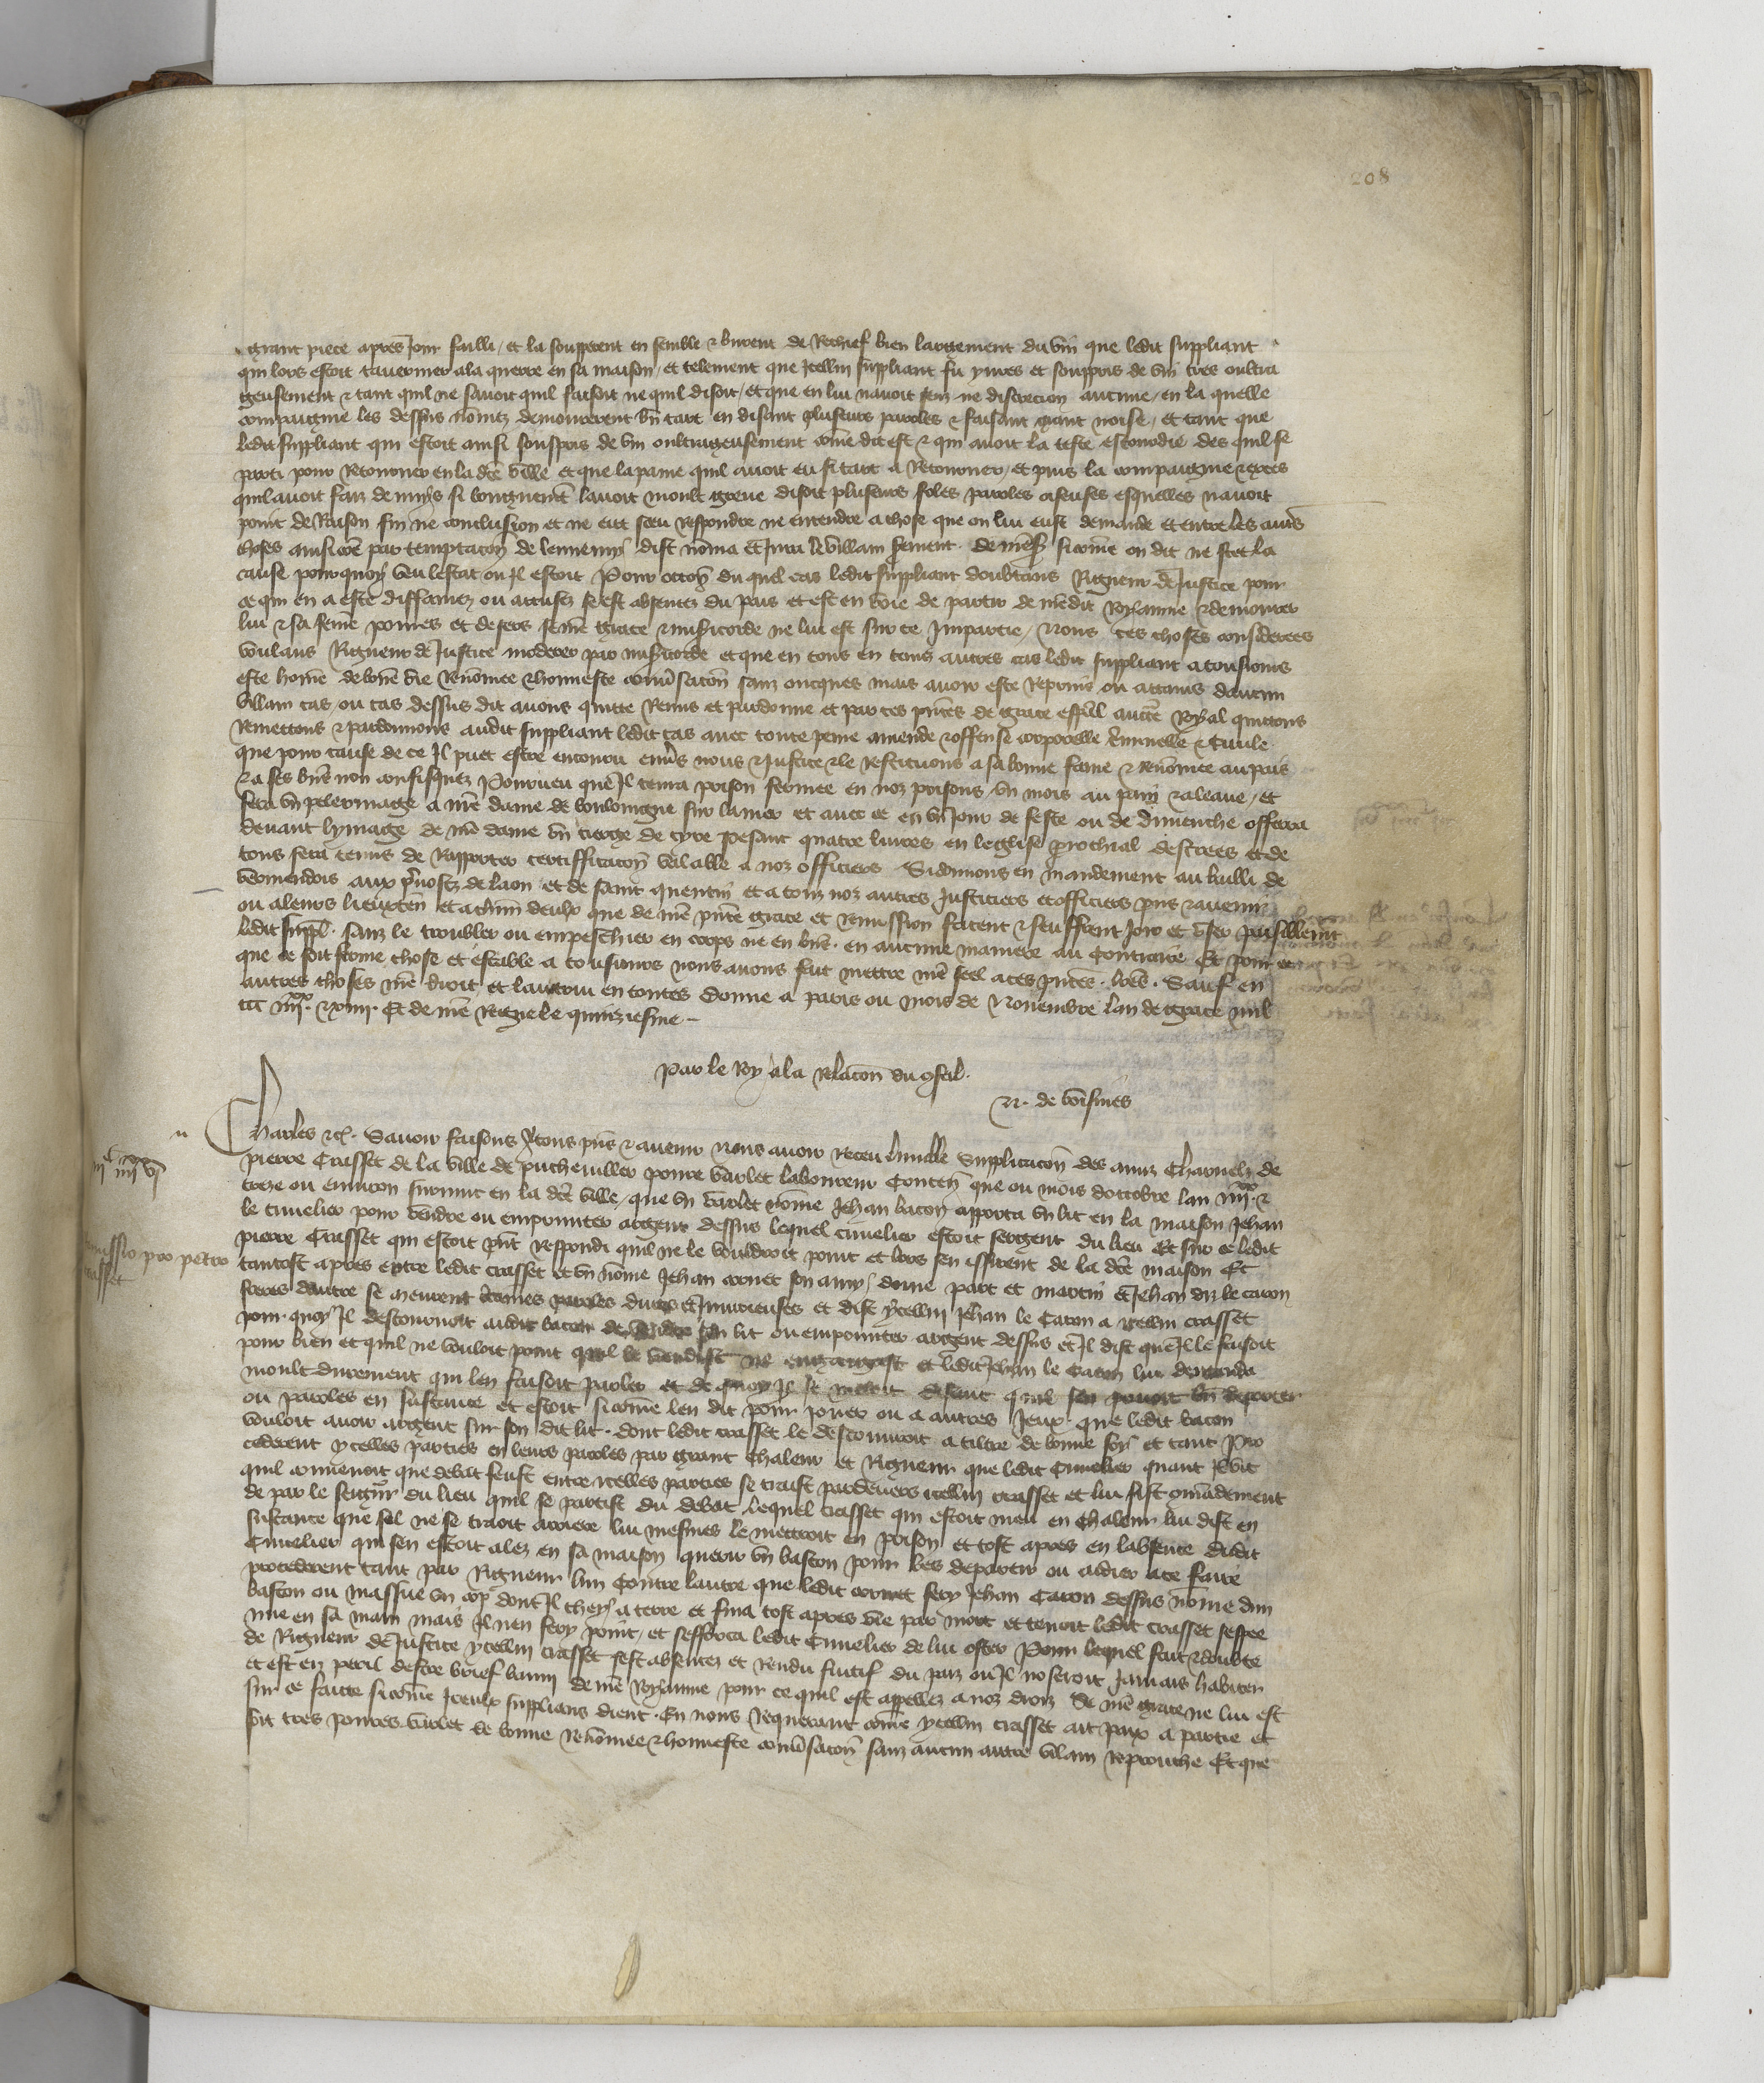 208
grant piece apres Jour failli / et la soupperent en semble & burent de Rechief bien largement du vin que ledit suppliant
qui lors estoit tavernier ala querre en sa maison / et telement que Icellui suppliant fu yvres et souppris de vin tres oultra
geusement & tant quil ne savoit quil faisoit ne quil disoit / et que en lui navoit sens ne discrecion aucune / en la quelle
compaignie les dessus nōmez demourerent bn̄ tart en disant plusieurs paroles & faisant grant noise / et tant que
ledit suppliant qui estoit ainsi souspris de vin oultrageusement cōme dit est & qui avoit la teste estourdie des quil se
parti pour Retourner en la dcē ville et que la paine quil avoit eu si tart a Retourner / et puis la compaignie &
quil avoit moult greve disoit plusieurs foles paroles oiseuses esquelles navoit
point de Raison fin ne conclusion et ne eut sceu respondre ne entendre a chose que on lui eust demande et entre les autrēs
choses ainsi cōe par temptacoñ de lennemi dist nōma et Jura le villain serment de sicōme on dit ne scet la
cause pourquoy veu lestat ou Il estoit Pour occoñ du quel cas ledit suppliant doubtans Rigueur de Justice pour
ce qui en a este diffamez ou accusez sest absentez du pais et est en voie de partir de nr̄edit Royaume & demourer
lui & sa feme povres et desers se nr̄e grace & misericorde ne lui est sur ce Impartie / Nous ces choses considerees
voulans Rigueur de Justice moderer par misericorde et que en tous en tous autres cas ledit suppliant a tousiours
este home de bōne vie Renōmee & honneste convsacoñ sanz oncques mais avoir este Reprins ou attains daucun
villain cas / ou cas dessus dit avons quitte Remis et pardonne et par ces pn̄tes de grace esp̄al auctē Royal quittons
Remettons & pardonnons audit suppliant ledit cas avec toute peine amende & offense corporelle criminelle & Civile
que pour cause de ce Il puet estre encouru envs nous & Justice & le restituons a sa bonne fame & renōmee au pais
& a ses bn̄s non confisquez Pourveu que Il tenra prison fermee en noz prisons un mois au pain & a leaue / et
fera un pelerinage a nr̄e dame de bouloingne sur la mer et avec ce en un Jour de feste ou de dimenche offerra
devant lymage de nr̄e dame un cierge de cyre pesant quatre livres en leglise prochial et de
tous sera tenus de Rapporter certifficacoñ valable a noz officiers Si donnons en mandement au bailli de
vermendois aux pvostz de laon et de saint quentin et a touz noz autres Justiciers et officiers pn̄s & avenir
ou a leurs lieuxten et a chūn deulx que de nr̄e pn̄te grace et Remission facent & seuffrent Joir et user paisiblemt
ledit suppl. sanz le troubler ou empeschier en corps ne en bn̄s en aucune maniere au contraire Et pour ce
que ce soit ferme chose et estable a tousiours nous avons fait mettre nr̄e seel a ces pn̄tes lrēs Sauf en
autres choses nr̄e droit et lautrui en toutes donne a paris ou mois de Novembre lan de grace mil
ccc iiijxx & xiiij. Et de nr̄e Regne le quinziesme
Par le Roy a la Relacon du conseil
N. de voisines
Charles &c. Savoir faisons a tous pn̄s & avenir Nous avoir receu lumble Supplicacoñ des amis Charnelz de
pierre Crasset de la ville de puchevillier povre varlet laboureur Conten̄ que ou mois doctobre lan iiijxx &
treze ou environ survint en la dcē ville / que un varlet nōme Jehan bacon apporta un lit en la maison Jehan
le Cuvelier pour vendre ou emprunter argent dessus lequel Cuvelier estoit sergent du lieu Et sur ce ledit
pierre Crasset qui estoit pn̄t Respondi quil ne le vouldroit point et lors sen issirent de la dcē maison Et
tantost apres entre ledit crasset et un nōme Jehan cornet son amy / dune part et martin et Jehan diz le caron
freres dautre se meurent certaines paroles dures et Injurieuses et dist ycellui Jehan le Caron a icellui crasset
pour quoy Il destournoit audit bacon de vendre son lit ou emprunter argent dessus et Il dist que Il le faisoit
pour bien et quil ne vouloit point quil le vendist ne engaigast et ledit Jehan le Caron lui demanda
moult durement qui len faisoit parler et de quoy Il se mesloit disant quil sen povoit bn̄ deporter
ou paroles en substance et estoit sicōme len dit pour Jouer ou a autres Jeux que ledit bacon
vouloit avoir argent sur son dit lit. dont ledit crasset le destournoit a tiltre de bonne foy et tant pro
cederent ycelles parties en leurs paroles par grant chaleur et Rigueur que ledit Cuvelier quant Il vit
quil convenoit que debat feust entre icelles parties se traist pardevers icellui crasset et lui fist cōmandement
de par le seigr̄ du lieu quil se partist du debat lequel crasset qui estoit meu en chaleur lui dist en
sustance que sel ne se traoit arriere lui mesmes le mettroit en prison et tost apres en labsence dudit
Cuvelier qui sen estoit alez en sa maison querir un baston pour les departir ou aidier a ce faire
procederent tant par Rigueur lun contre lautre que ledit cornet fery Jehan Caron dessus nōme dun
baston ou massue un cop dont Il chey a terre et fina tost apres vie par mort et tenoit ledit crasset sespee
nue en sa main mais Il nen fery point / et sefforca ledit Cuvelier de lui oster Pour lequel fait & doubte
de Rigueur de Justice ycellui crasset sest absentez et Rendu fuitif du paiz ou Il noseroit Jamais habiter
et est en peril destre brief banni de nr̄e Royaume pour ce quil est appellez a noz droiz se nr̄e grace ne lui est
sur ce faicte sicōme Iceulx supplians dient En nous requerant cōme ycellui crasset ait paix a partie et
soit tres povres varlet de bonne renōmee & honneste convsacoñ sanz aucun autre vilain reprouche Et que
iijc iiijxx vj
Remissio pro petro
crasset